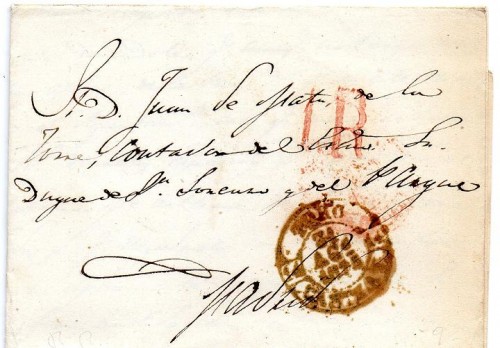 S. D. Juan de Mata, de la
Torre, Contador del Exmo. Sr.
Duque de Sn. Lorenzo y del Parque
Madrid
1R